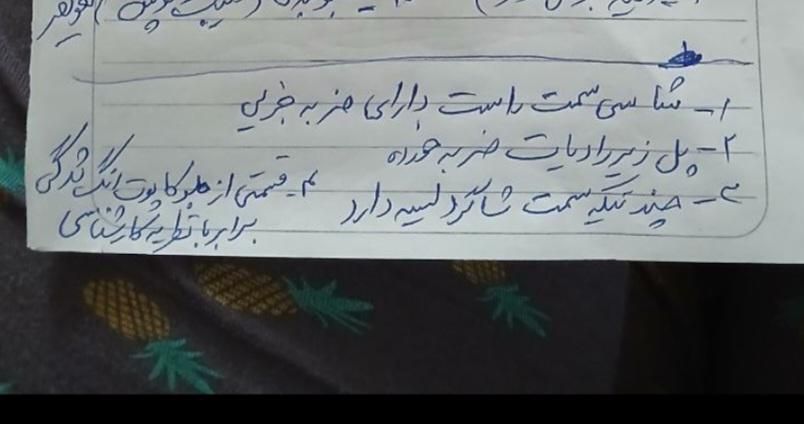 ۱- شاسی سمت راست دارای ضربه جزیی
۲- پل زیر رادیات ضربه خورده
۳- چند تیکه سمت شاگرد لیسه دارد
۴- قسمتی از جلو کاپوت رنگ شدگی
برابر با نظریه کارشناسی